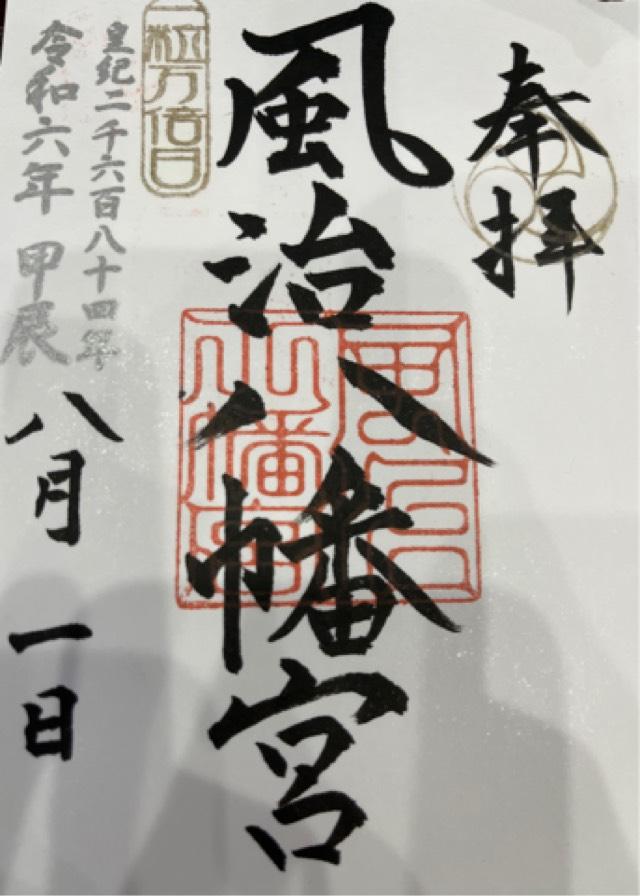 奉拝
風治八幡宮
一粒万倍日
皇紀二千六百八十四年
令和六年 甲辰
八月一日